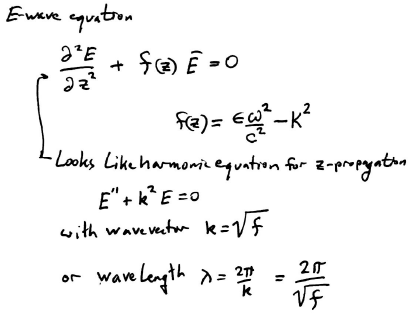 E-wave equation
∂²E/∂z² + f(z) Ē = 0
f(z) = ϵω²/c² - K²
Looks like harmonic equation for z-propagation
E'' + k² E = 0
with wavevector k = √f
or wavelength λ = 2π/k = 2π/√f